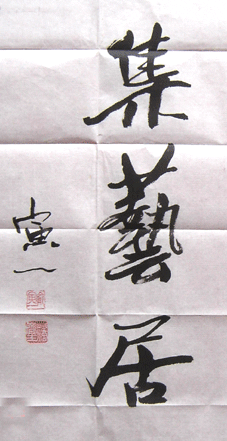 集藝居
寅一